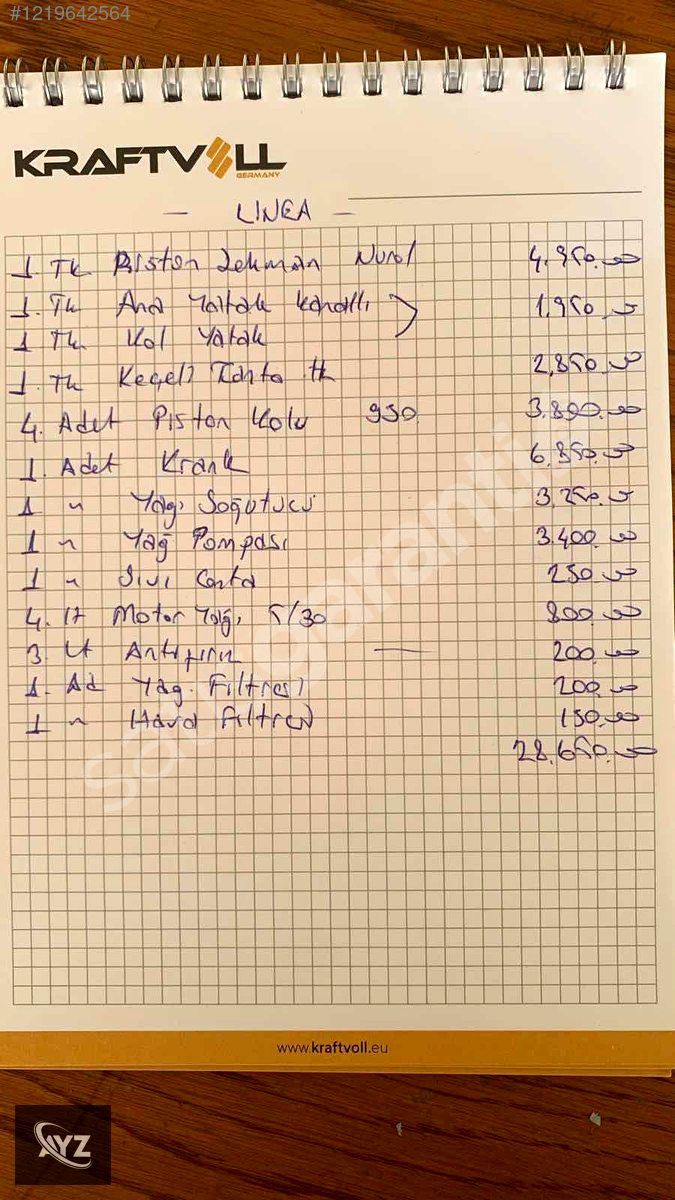 #1219642564
KRAFTVOLL
GERMANY
- LINEA -
1. Tk Piston Sekman Nural 4.950.00
1. Tk Ana Yatak kanallı 1.950.00
1 Tk Kol Yatak
1. Tk Keçeli Conta tk 2.850.00
4. Adet Piston Kolu 950 3.800.00
1. Adet Krank 6.850.00
1 " Yağ Soğutucu 3.250.00
1 " Yağ Pompası 3.400.00
1 " Sıvı Conta 250.00
4. lt Motor Yağı 5/30 800.00
3. lt Antifiriz 200.00
1. Ad Yağ Filtresi 200.00
1 " Hava Filtresi 150.00
28.650.00
sahibinden garantili
www.kraftvoll.eu
AYZ